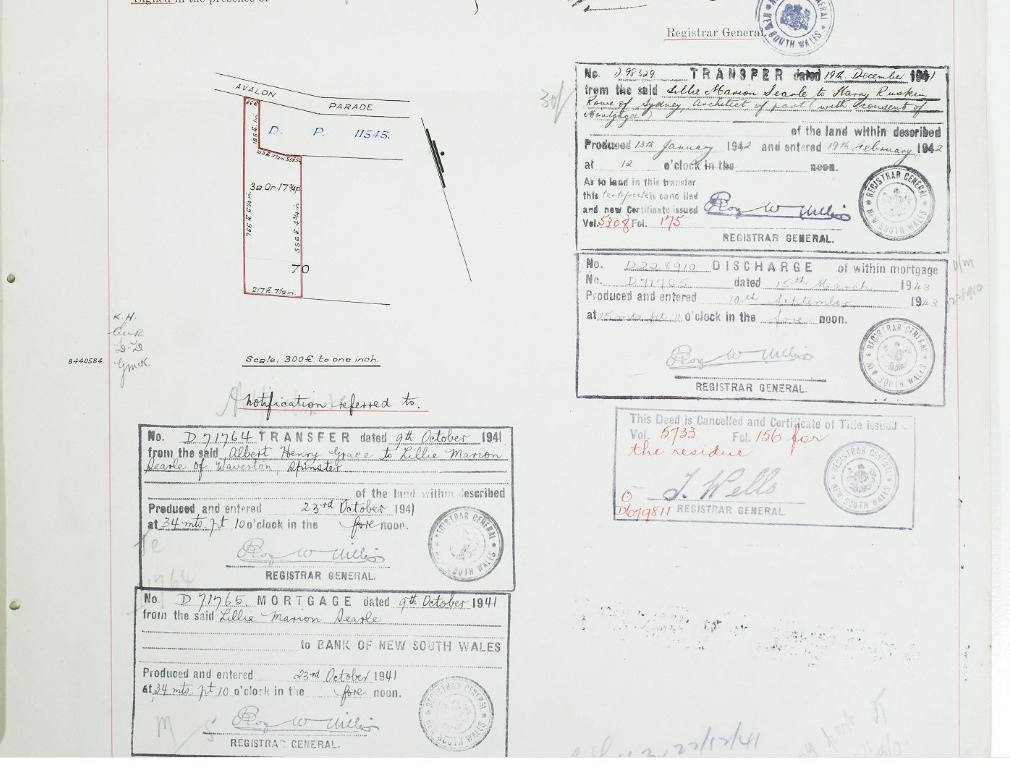 Signed in the presence of
Registrar General
AVALON
PARADE
D. P. 11545.
3a. 0r. 17¾p
70
217 ft 7½ in.
K. H.
B440584
Scale; 300 ft to one inch.
Notification referred to.
No. D71764 TRANSFER dated 9th October 1941
from the said Albert Henry Grace to Lillie Marion
Searle of Waverton, Spinster
of the land within described
Produced and entered 23rd October 1941
at 34 mts. pt 10 o'clock in the fore noon.
REGISTRAR GENERAL.
No. D 71765 MORTGAGE dated 9th October 1941
from the said Lillie Marion Searle
to BANK OF NEW SOUTH WALES
Produced and entered 23rd October 1941
at 34 mts. pt 10 o'clock in the fore noon.
REGISTRAR GENERAL.
No. D98329 TRANSFER dated 19th December 1941
from the said Lillie Marion Searle to Harry Ruskin
Rowe of Sydney, Architect of part (with consent of
Mortgagee)
of the land within described
Produced 13th January 1942 and entered 19th February 1942
at 12 o'clock in the noon.
As to land in this transfer
this Certificate is cancelled
and new Certificate issued
Vol. 5308 Fol. 175
REGISTRAR GENERAL.
No. D228910 DISCHARGE of within mortgage
No. D71765 dated 15th March, 1943
Produced and entered 10th September 1943
o'clock in the fore noon.
REGISTRAR GENERAL.
This Deed is Cancelled and Certificate of Title issued
Vol. 5733 Fol. 156 for
the residue
J. Wells
D679811 REGISTRAR GENERAL.
22/12/41